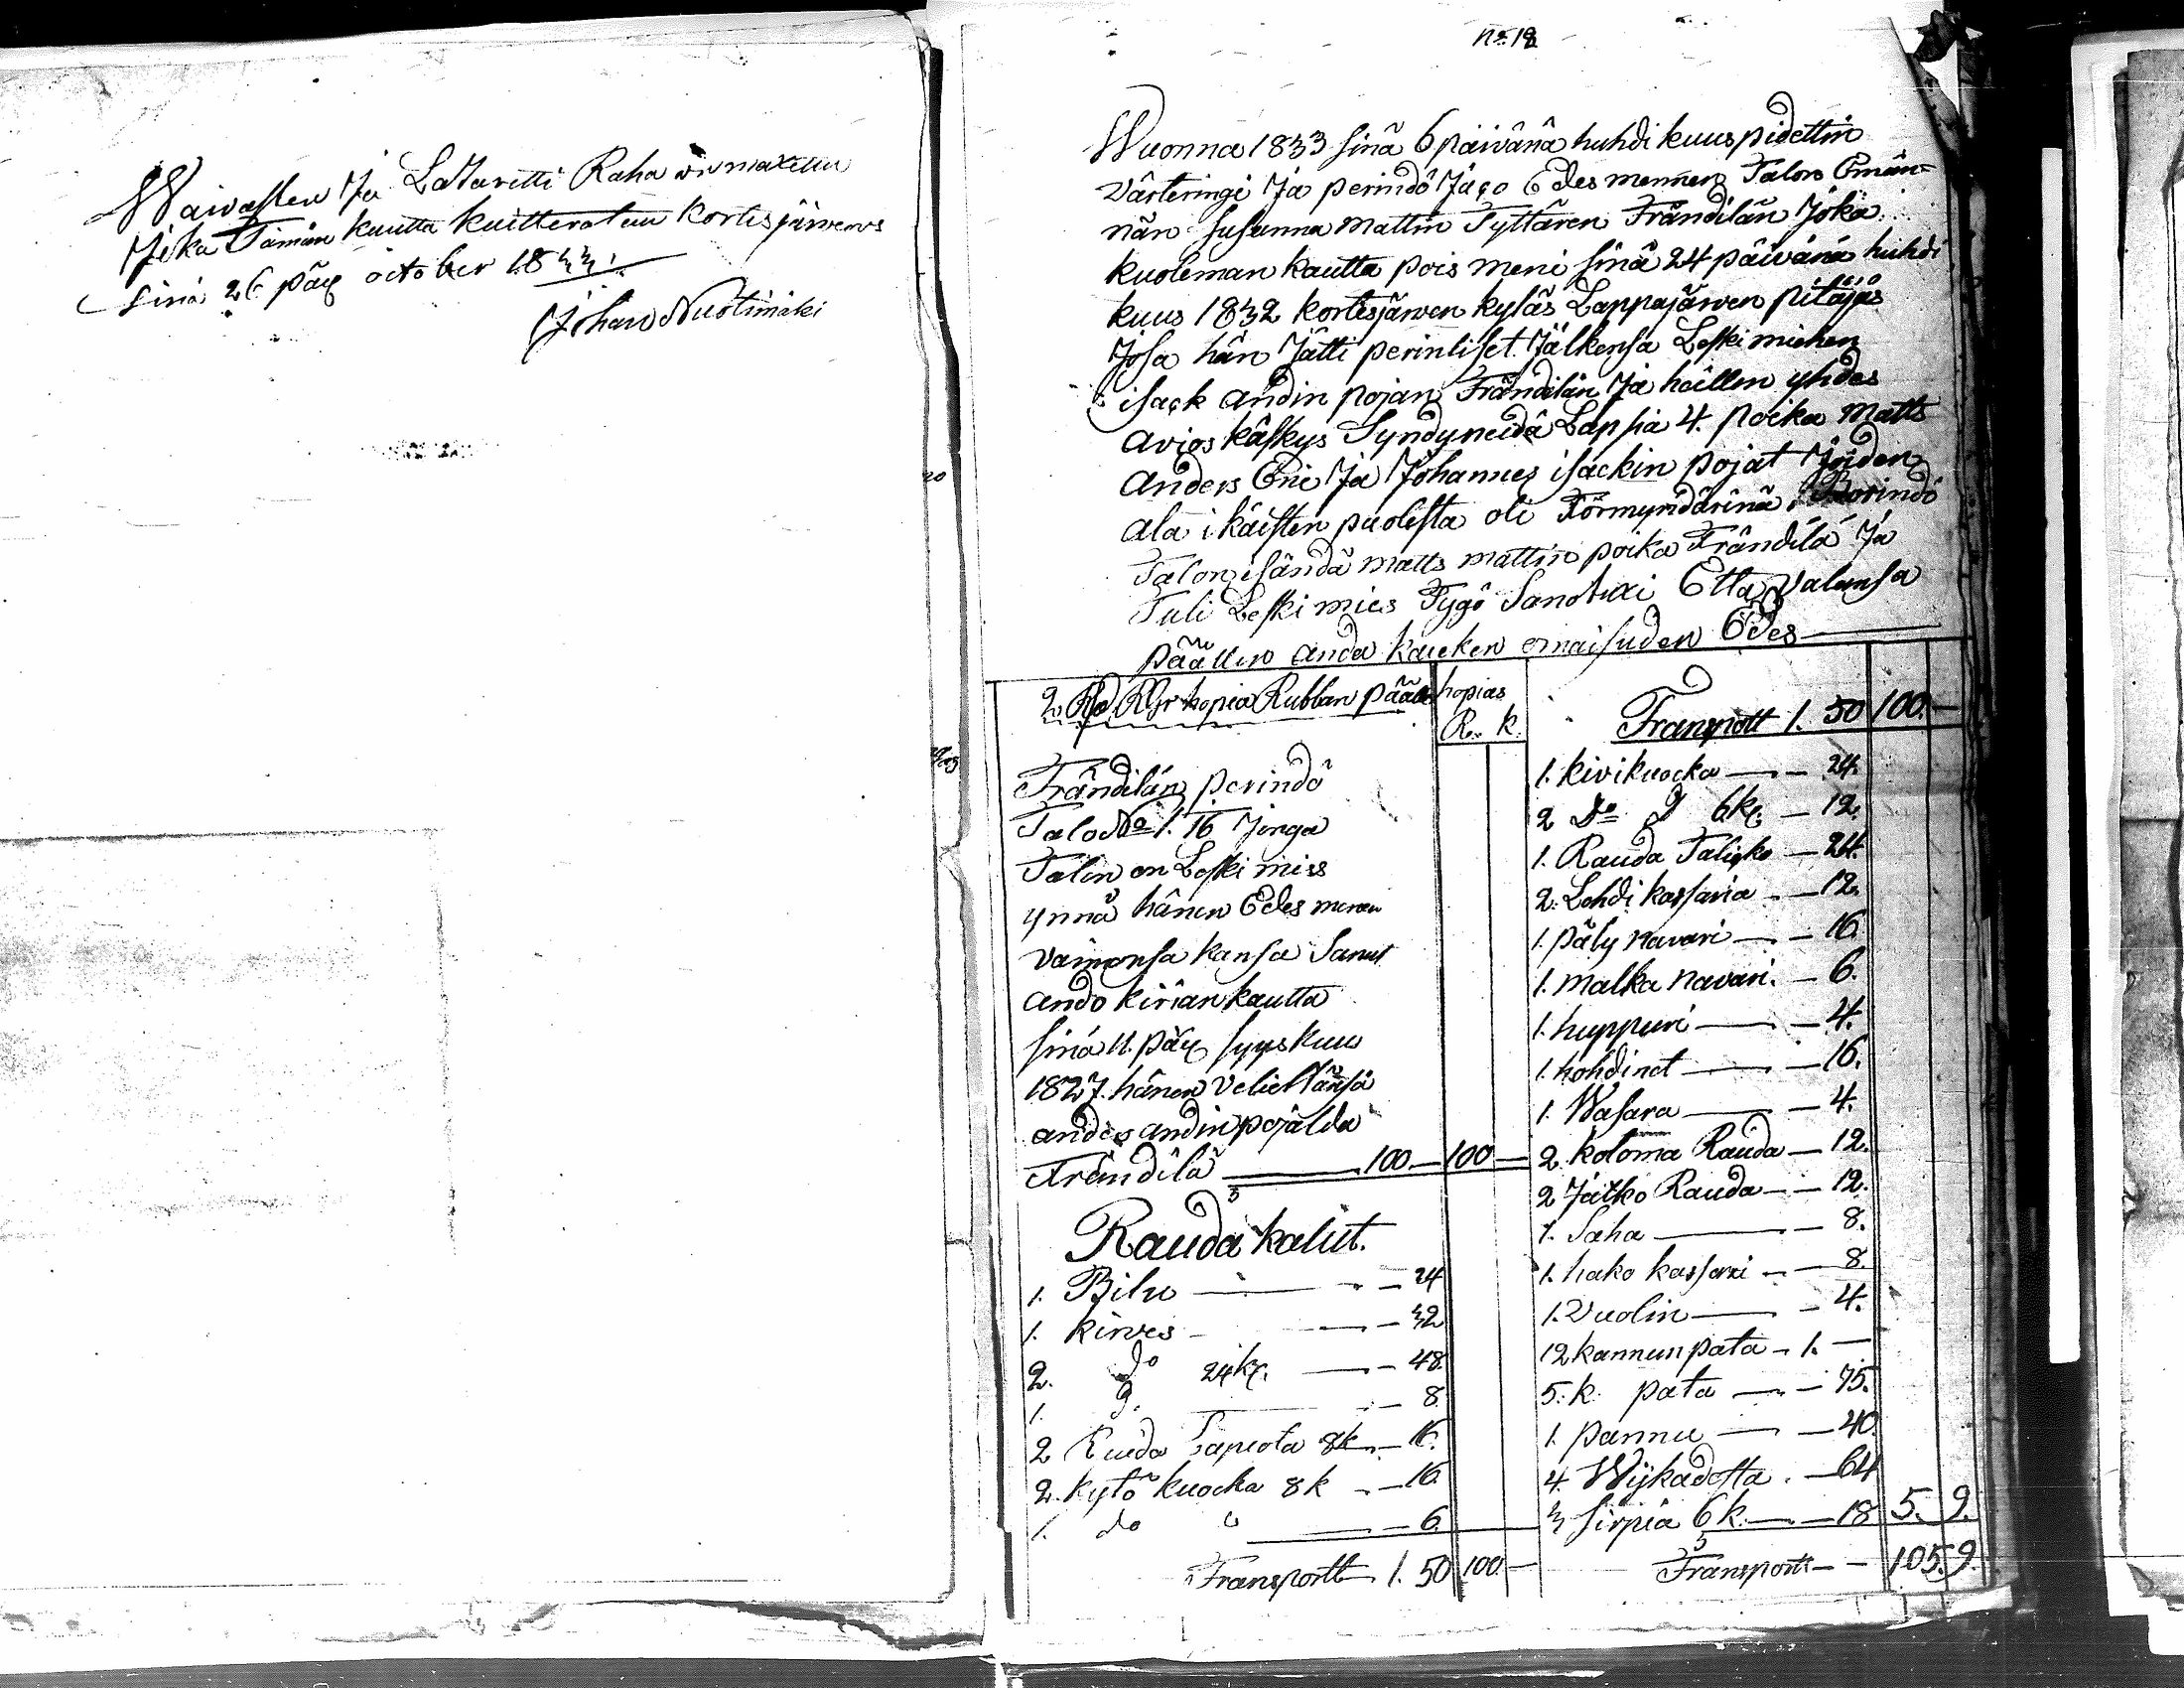 Waivasten Ja Lataretti Raha on maxettu
Joka Tämän kautta kuitteratan Kortesjärwens
sinä 26 päy october 1833.
Johan Nuotimäki
No 18
Wuonna 1833 sinä 6 päivänä huhdi kuus pidettin
värteringi Ja perindö Jaco Edes mennen Talon Emän=
nän Susanna Mattin Tyttären Frändilän Joka
kuoleman kautta pois meni sinä 24 päivänä huhdi
kuus 1832 kortesjärwen kyläs Lappajärwen pitäjäs
Josa hän Jätti perinliset Jälkensa Leski miehen
isack andin pojan Frändilän Ja heillen yhdes
avios käskys Syndyneidä Lapsia 4. poika Matts
Anders Eric Ja Johannes isackin pojat Joiden
ala ikäisten puolesta oli Förmyndärinä Perindö
Talon isändä matts mattin poika Frändilä Ja
Tuli Leski mies Tygö Sanotuxi Etta Valansa
päällen anda kaicken omaisuden Edes
hopia Rublan pääle hopias
R. k.
Frändilän perindö
Talo No 1. 16 Jonga
Talon on Leski mies
ynnä hänen Edes menen
vaimonsa kansa Sanut
ando kirian kautta
sinä 11. päy syys kuu
1827. hänen Velieltänsä
anders andin pojalda
Frändilä 100 100
Rauda kalut.
1. Bilu 24
1. kirves 32
2. do 24k. 48
1. 8
2 Lapiota 8k 16.
2. kytö kuocka 8k 16
1. do 6
Transportt 1. 50 100.
Transportt 1. 50 100.
1. kivikuocka 24.
2 Do 6k. 12.
1. Rauda Talicko 24.
2. Lehdi kassaria 12.
1. päly navari 16
1. malka navari. 6.
1. huppuri 4.
1. hohdinet 16.
1. Wasara 4.
2. koloma Rauda 12.
2 Jatko Rauda 12.
1. Saha 8.
1. hako kassari 8.
1. Vuolin 4.
12 kannun pata 1.
5. k. pata 75.
1. pannu 40
4. Wijkadetta 64
3 Sirpiä 6k. 18 5. 9.
Transportt 105. 9.